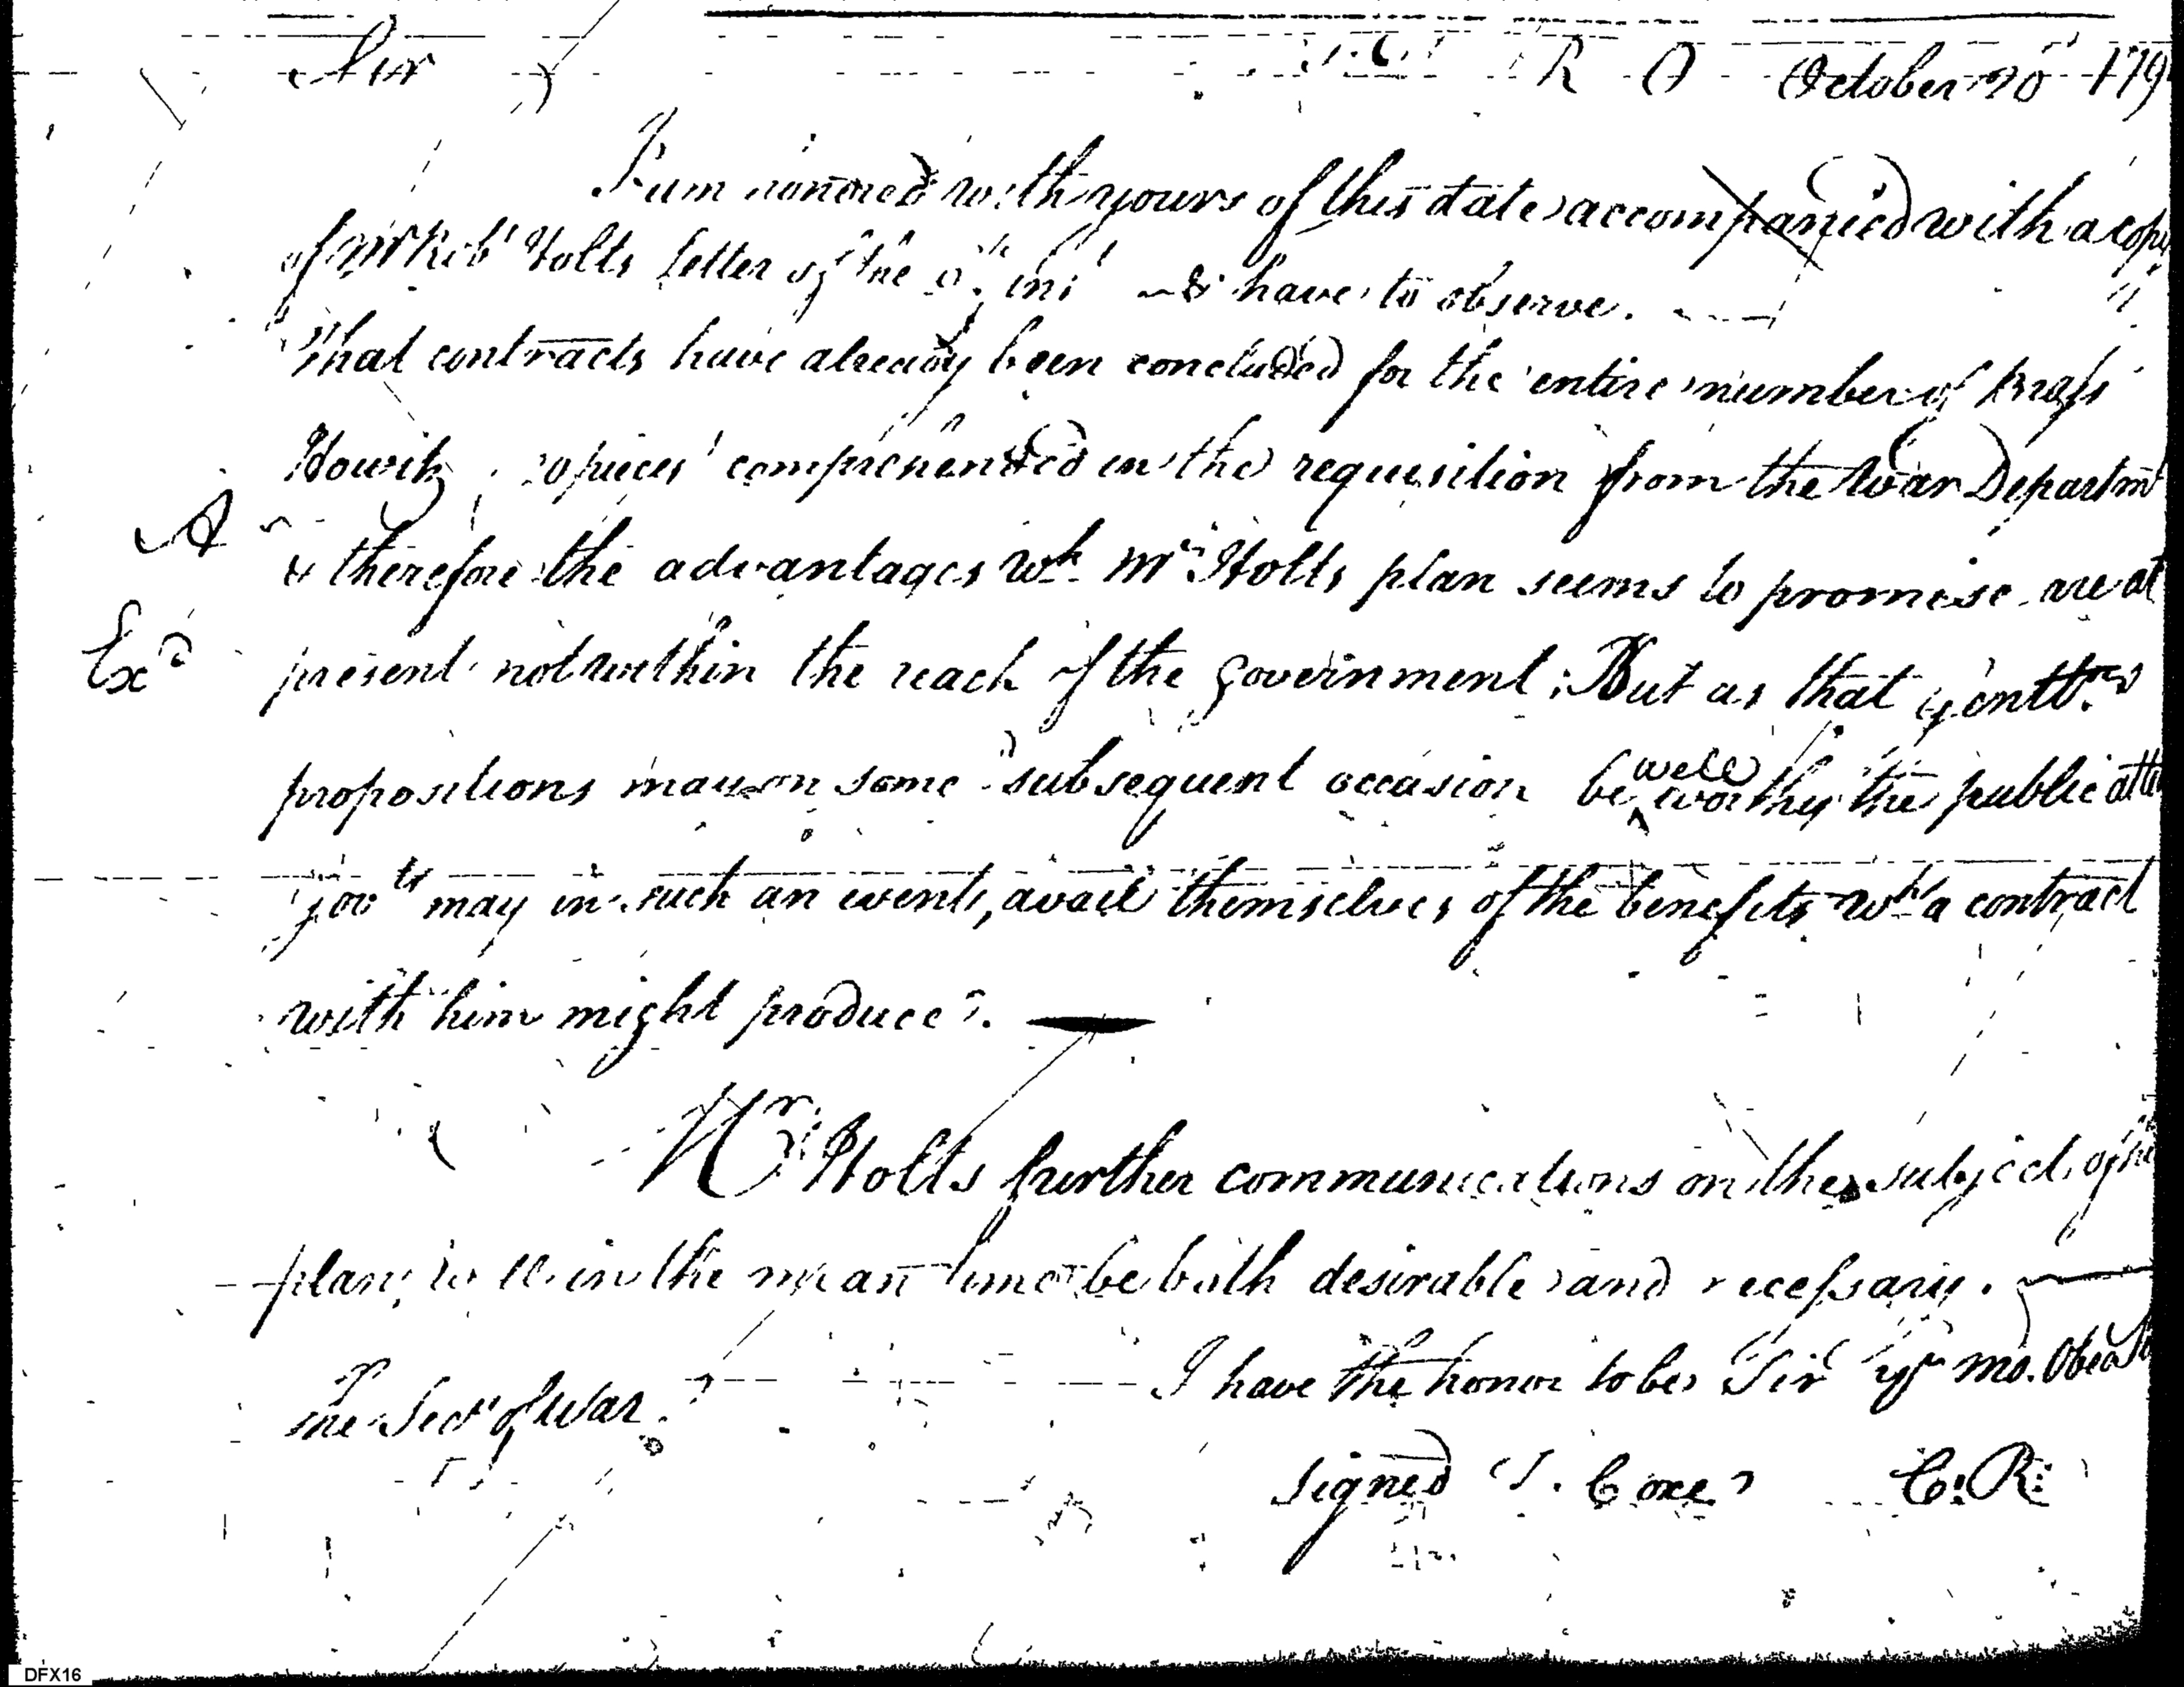 Sir R O October 20 179
I am honored with yours of this date accompanied with a copy
of Mr Robt Holts letter of the inst & have to observe.
that contracts have already been concluded for the entire number of Brass
Howitz pieces comprehended in the requisition from the War Departmt
A
& therefore the advantages wh Mr Holts plan seems to promise are at
Exd present not within the reach of the government; But as that Gentl.
propositions may on some subsequent occasion be well worthy the public atte
govt may in such an event, avail themselves of the benefits wh a contract
with him might produce.
Mr Holts further communications on the subject of his
plan, will in the mean time be both desirable and necessary.
I have the honor to be Sir yr mo. Obed
The Secy of War
signed T. Coxe C.R.
DFX16